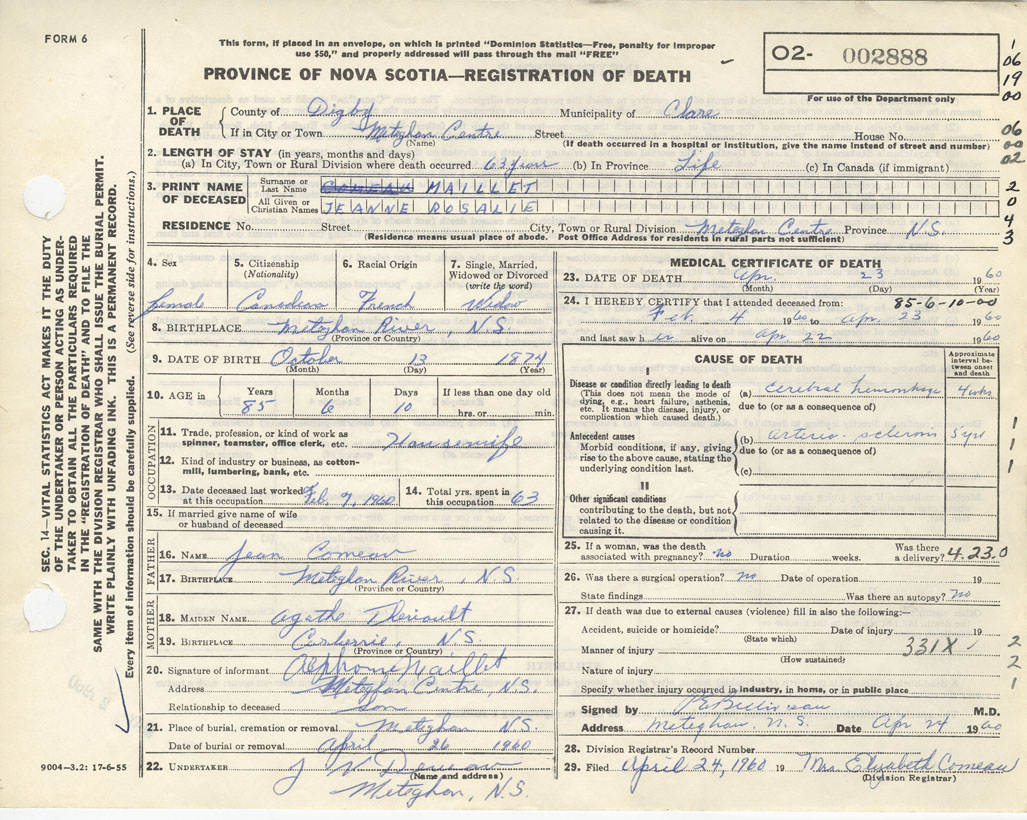 FORM 6
This form, if placed in an envelope, on which is printed "Dominion Statistics—Free, penalty for improper
use $50," and properly addressed will pass through the mail "FREE"
PROVINCE OF NOVA SCOTIA—REGISTRATION OF DEATH
02- 002888
For use of the Department only
1
06
19
00
06
00
02
2
0
4
3
1. PLACE OF DEATH
County of Digby Municipality of Clare
If in City or Town Meteghan Centre Street House No.
(Name) (If death occurred in a hospital or institution, give the name instead of street and number)
2. LENGTH OF STAY (in years, months and days)
(a) In City, Town or Rural Division where death occurred 63 years (b) In Province Life (c) In Canada (if immigrant)
3. PRINT NAME OF DECEASED
Surname or Last Name COMEAU MAILLET
All Given or Christian Names JEANNE ROSALIE
RESIDENCE No. Street City, Town or Rural Division Meteghan Centre Province N.S.
(Residence means usual place of abode. Post Office Address for residents in rural parts not sufficient)
4. Sex female
5. Citizenship (Nationality) Canadian
6. Racial Origin French
7. Single, Married, Widowed or Divorced (write the word) Widow
8. BIRTHPLACE Meteghan River, N.S.
(Province or Country)
9. DATE OF BIRTH October 13 1874
(Month) (Day) (Year)
10. AGE in Years 85 Months 6 Days 10 If less than one day old hrs. or min.
OCCUPATION
11. Trade, profession, or kind of work as spinner, teamster, office clerk, etc. Housewife
12. Kind of industry or business, as cotton-mill, lumbering, bank, etc.
13. Date deceased last worked at this occupation Feb. 7, 1960
14. Total yrs. spent in this occupation 63
15. If married give name of wife or husband of deceased
FATHER
16. NAME Jean Comeau
17. BIRTHPLACE Meteghan River, N.S.
(Province or Country)
MOTHER
18. MAIDEN NAME Agathe Theriault
19. BIRTHPLACE Corberrie, N.S.
(Province or Country)
20. Signature of informant Alphonse Maillet
Address Meteghan Centre, N.S.
Relationship to deceased Son
21. Place of burial, cremation or removal Meteghan N.S.
Date of burial or removal April 26 1960
22. UNDERTAKER J V Deveau
(Name and address)
Meteghan, N.S.
9004-3.2: 17-6-55
SEC. 14—VITAL STATISTICS ACT MAKES IT THE DUTY
OF THE UNDERTAKER OR PERSON ACTING AS UNDER-
TAKER TO OBTAIN ALL THE PARTICULARS REQUIRED
IN THE "REGISTRATION OF DEATH" AND TO FILE THE
SAME WITH THE DIVISION REGISTRAR WHO SHALL ISSUE THE BURIAL PERMIT.
WRITE PLAINLY WITH UNFADING INK. THIS IS A PERMANENT RECORD.
Every item of information should be carefully supplied. (See reverse side for instructions.)
MEDICAL CERTIFICATE OF DEATH
23. DATE OF DEATH Apr 23 1960
(Month) (Day) (Year)
24. I HEREBY CERTIFY that I attended deceased from: 85-6-10-00
Feb 4 1960 to Apr 23 1960
and last saw her alive on Apr 22 1960
CAUSE OF DEATH
Approximate interval between onset and death
I
Disease or condition directly leading to death
(This does not mean the mode of dying, e.g., heart failure, asthenia, etc. It means the disease, injury, or complication which caused death.)
(a) Cerebral hemorrhage 4 wks
due to (or as a consequence of)
Antecedent causes
Morbid conditions, if any, giving rise to the above cause, stating the underlying condition last.
(b) Arterio-sclerosis 5 yrs
due to (or as a consequence of)
(c)
II
Other significant conditions
contributing to the death, but not related to the disease or condition causing it.
1
1
1
25. If a woman, was the death associated with pregnancy? no Duration weeks. Was there a delivery? 4.23.0
26. Was there a surgical operation? no Date of operation 19
State findings Was there an autopsy? no
27. If death was due to external causes (violence) fill in also the following:—
Accident, suicide or homicide? Date of injury 19
(State which)
Manner of injury 331X
(How sustained)
Nature of injury
Specify whether injury occurred in industry, in home, or in public place
2
2
1
Signed by M.D.
Address Meteghan, N.S. Date Apr 24 1960
28. Division Registrar's Record Number
29. Filed April 24, 1960 19 Mrs Elizabeth Comeau
(Division Registrar)